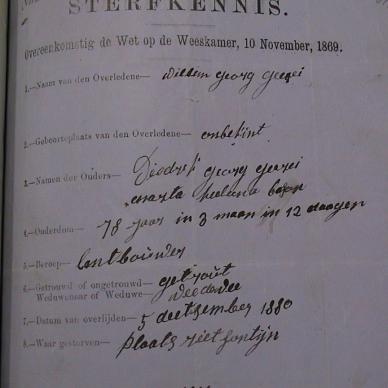 STERFKENNIS.
Overeenkomstig de Wet op de Weeskamer, 10 November, 1869.
1.—Naam van den Overledene— willem georg
2.—Geboorteplaats van den Overledene— onbekint
3.—Namen der Ouders— georg
helena
4.—Ouderdom— 78 jaar in 3 maan in 12 daagen
5.—Beroep— lantbouwer
6.—Getrouwd of ongetrouwd— getrout
Weduwenaar of Weduwe— weedewee
7.—Datum van overlijden— 5 deetsember 1880
8.—Waar gestorven— plaats rietfontijn